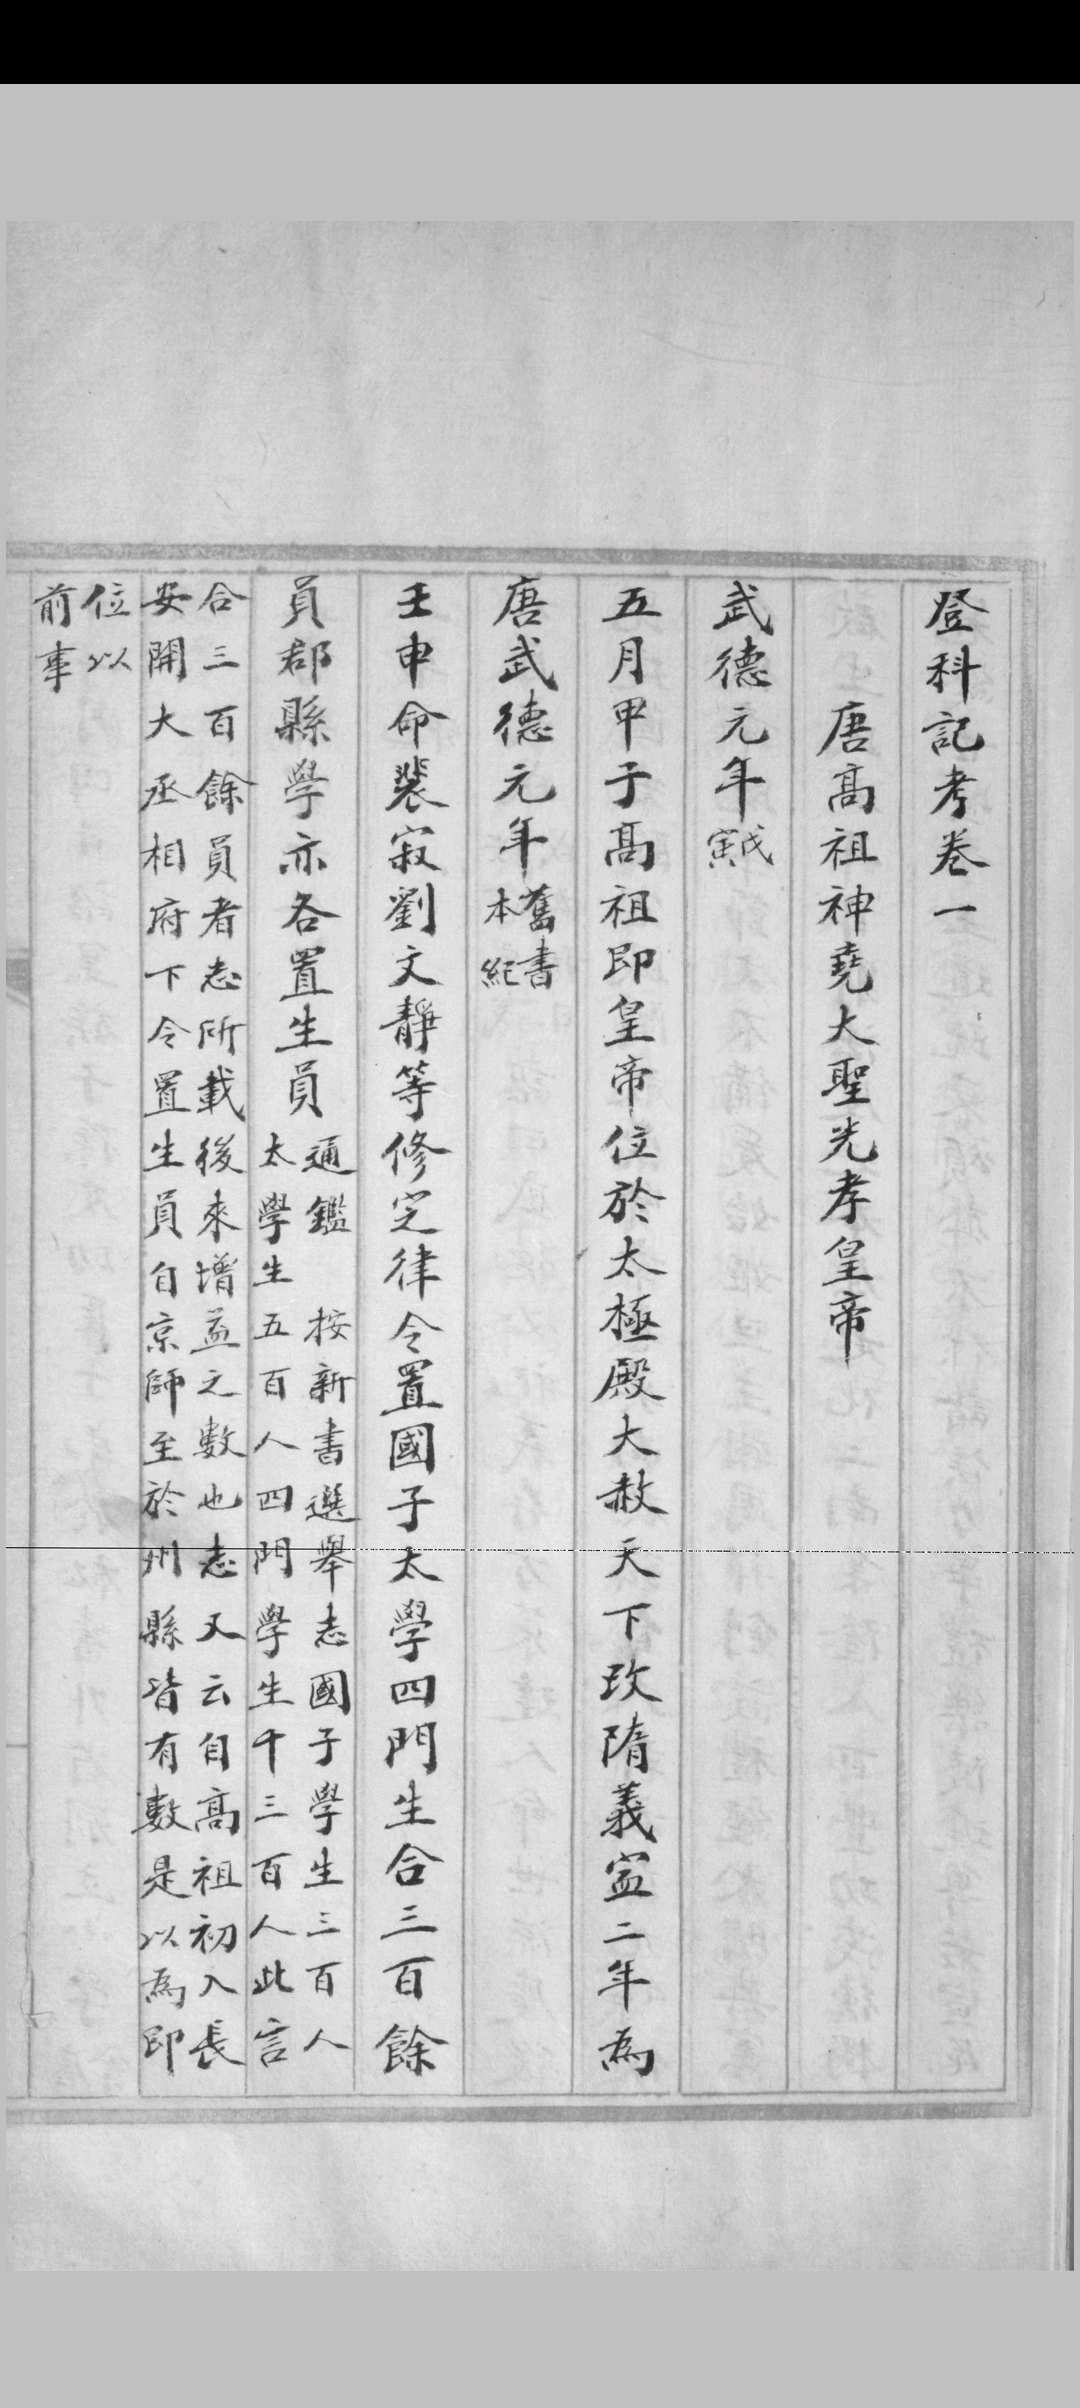 登科記考卷一
唐髙祖神堯大聖光孝皇帝
武德元年戊寅
五月甲子髙祖即皇帝位於太極殿大赦天下攺隋義寍二年為
唐武德元年舊書本紀
壬申命裴寂劉文靜等修定律令置國子太學四門生合三百餘
員郡縣學亦各置生員通鑑 按新書選舉志國子學生三百人
太學生五百人四門學生千三百人此言
合三百餘員者志所載後來增益之數也志又云自髙祖初入長
安開大丞相府下令置生員自京師至於州縣皆有數是以為即
位以
前事